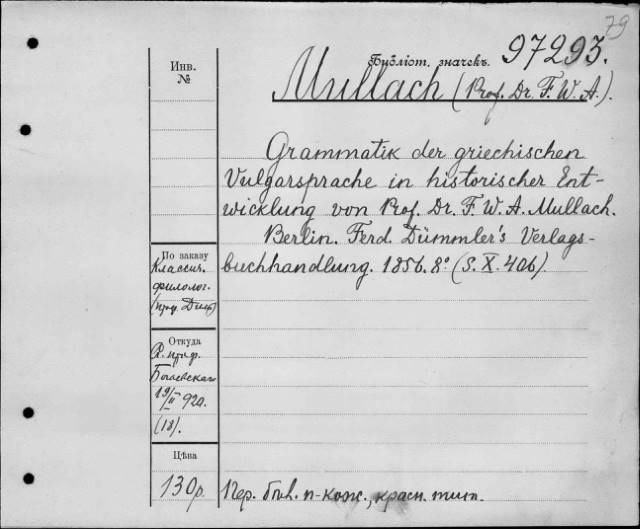 79
Инв.
№
Библіот. значекъ. 97293.
Mullach (Prof. Dr. F. W. A.).
Grammatik der griechischen
Vulgarsprache in historischer Ent-
wicklung von Prof. Dr. F. W. A. Mullach.
Berlin. Ferd. Dümmler's Verlags-
buchhandlung. 1856. 8º (S. X. 406).
По заказу
Классич.
филолог.
Откуда
Богаевскаго
19/II 920.
(18).
Цѣна
130 р.
Пер. п-кож., красн. тит.